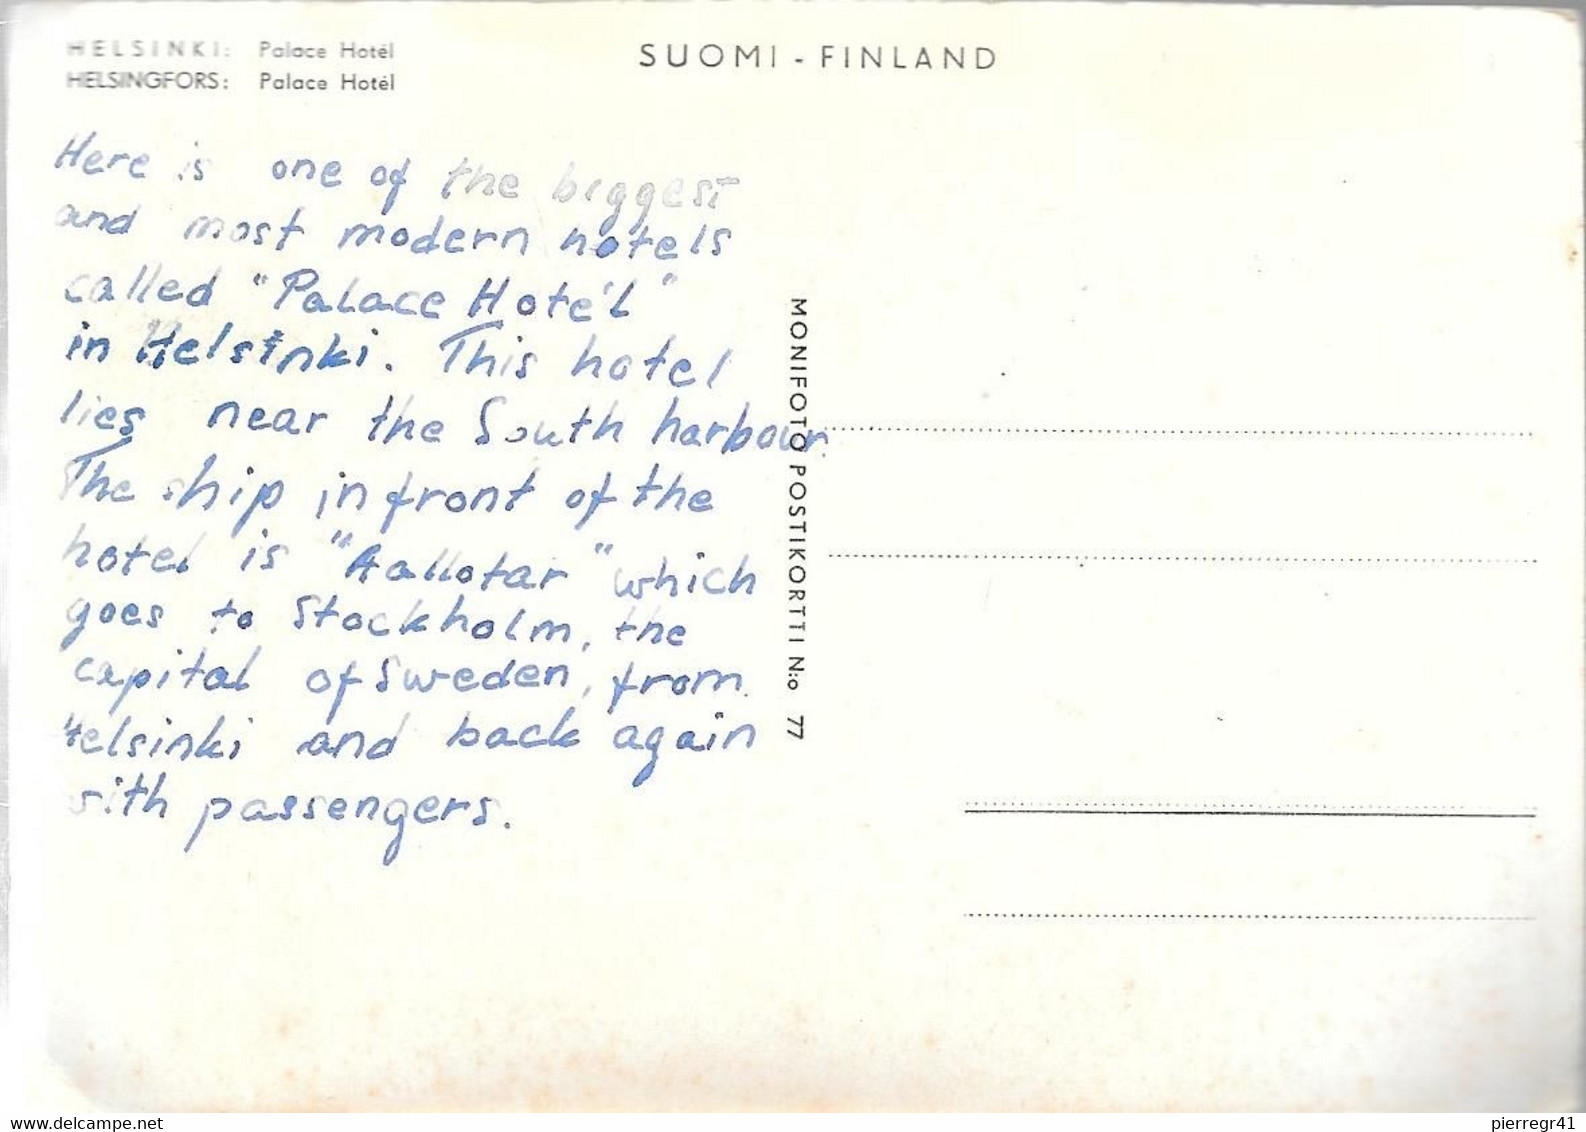 HELSINKI: Palace Hotél
HELSINGFORS: Palace Hotél
SUOMI - FINLAND
Here is one of the biggest
and most modern hotels
called "Palace Hotél"
in Helsinki. This hotel
lies near the South harbour.
The ship in front of the
hotel is "Aallotar" which
goes to Stockholm, the
capital of Sweden, from
Helsinki and back again
with passengers.
MONIFOTO POSTIKORTTI N:o 77
www.delcampe.net
pierregr41